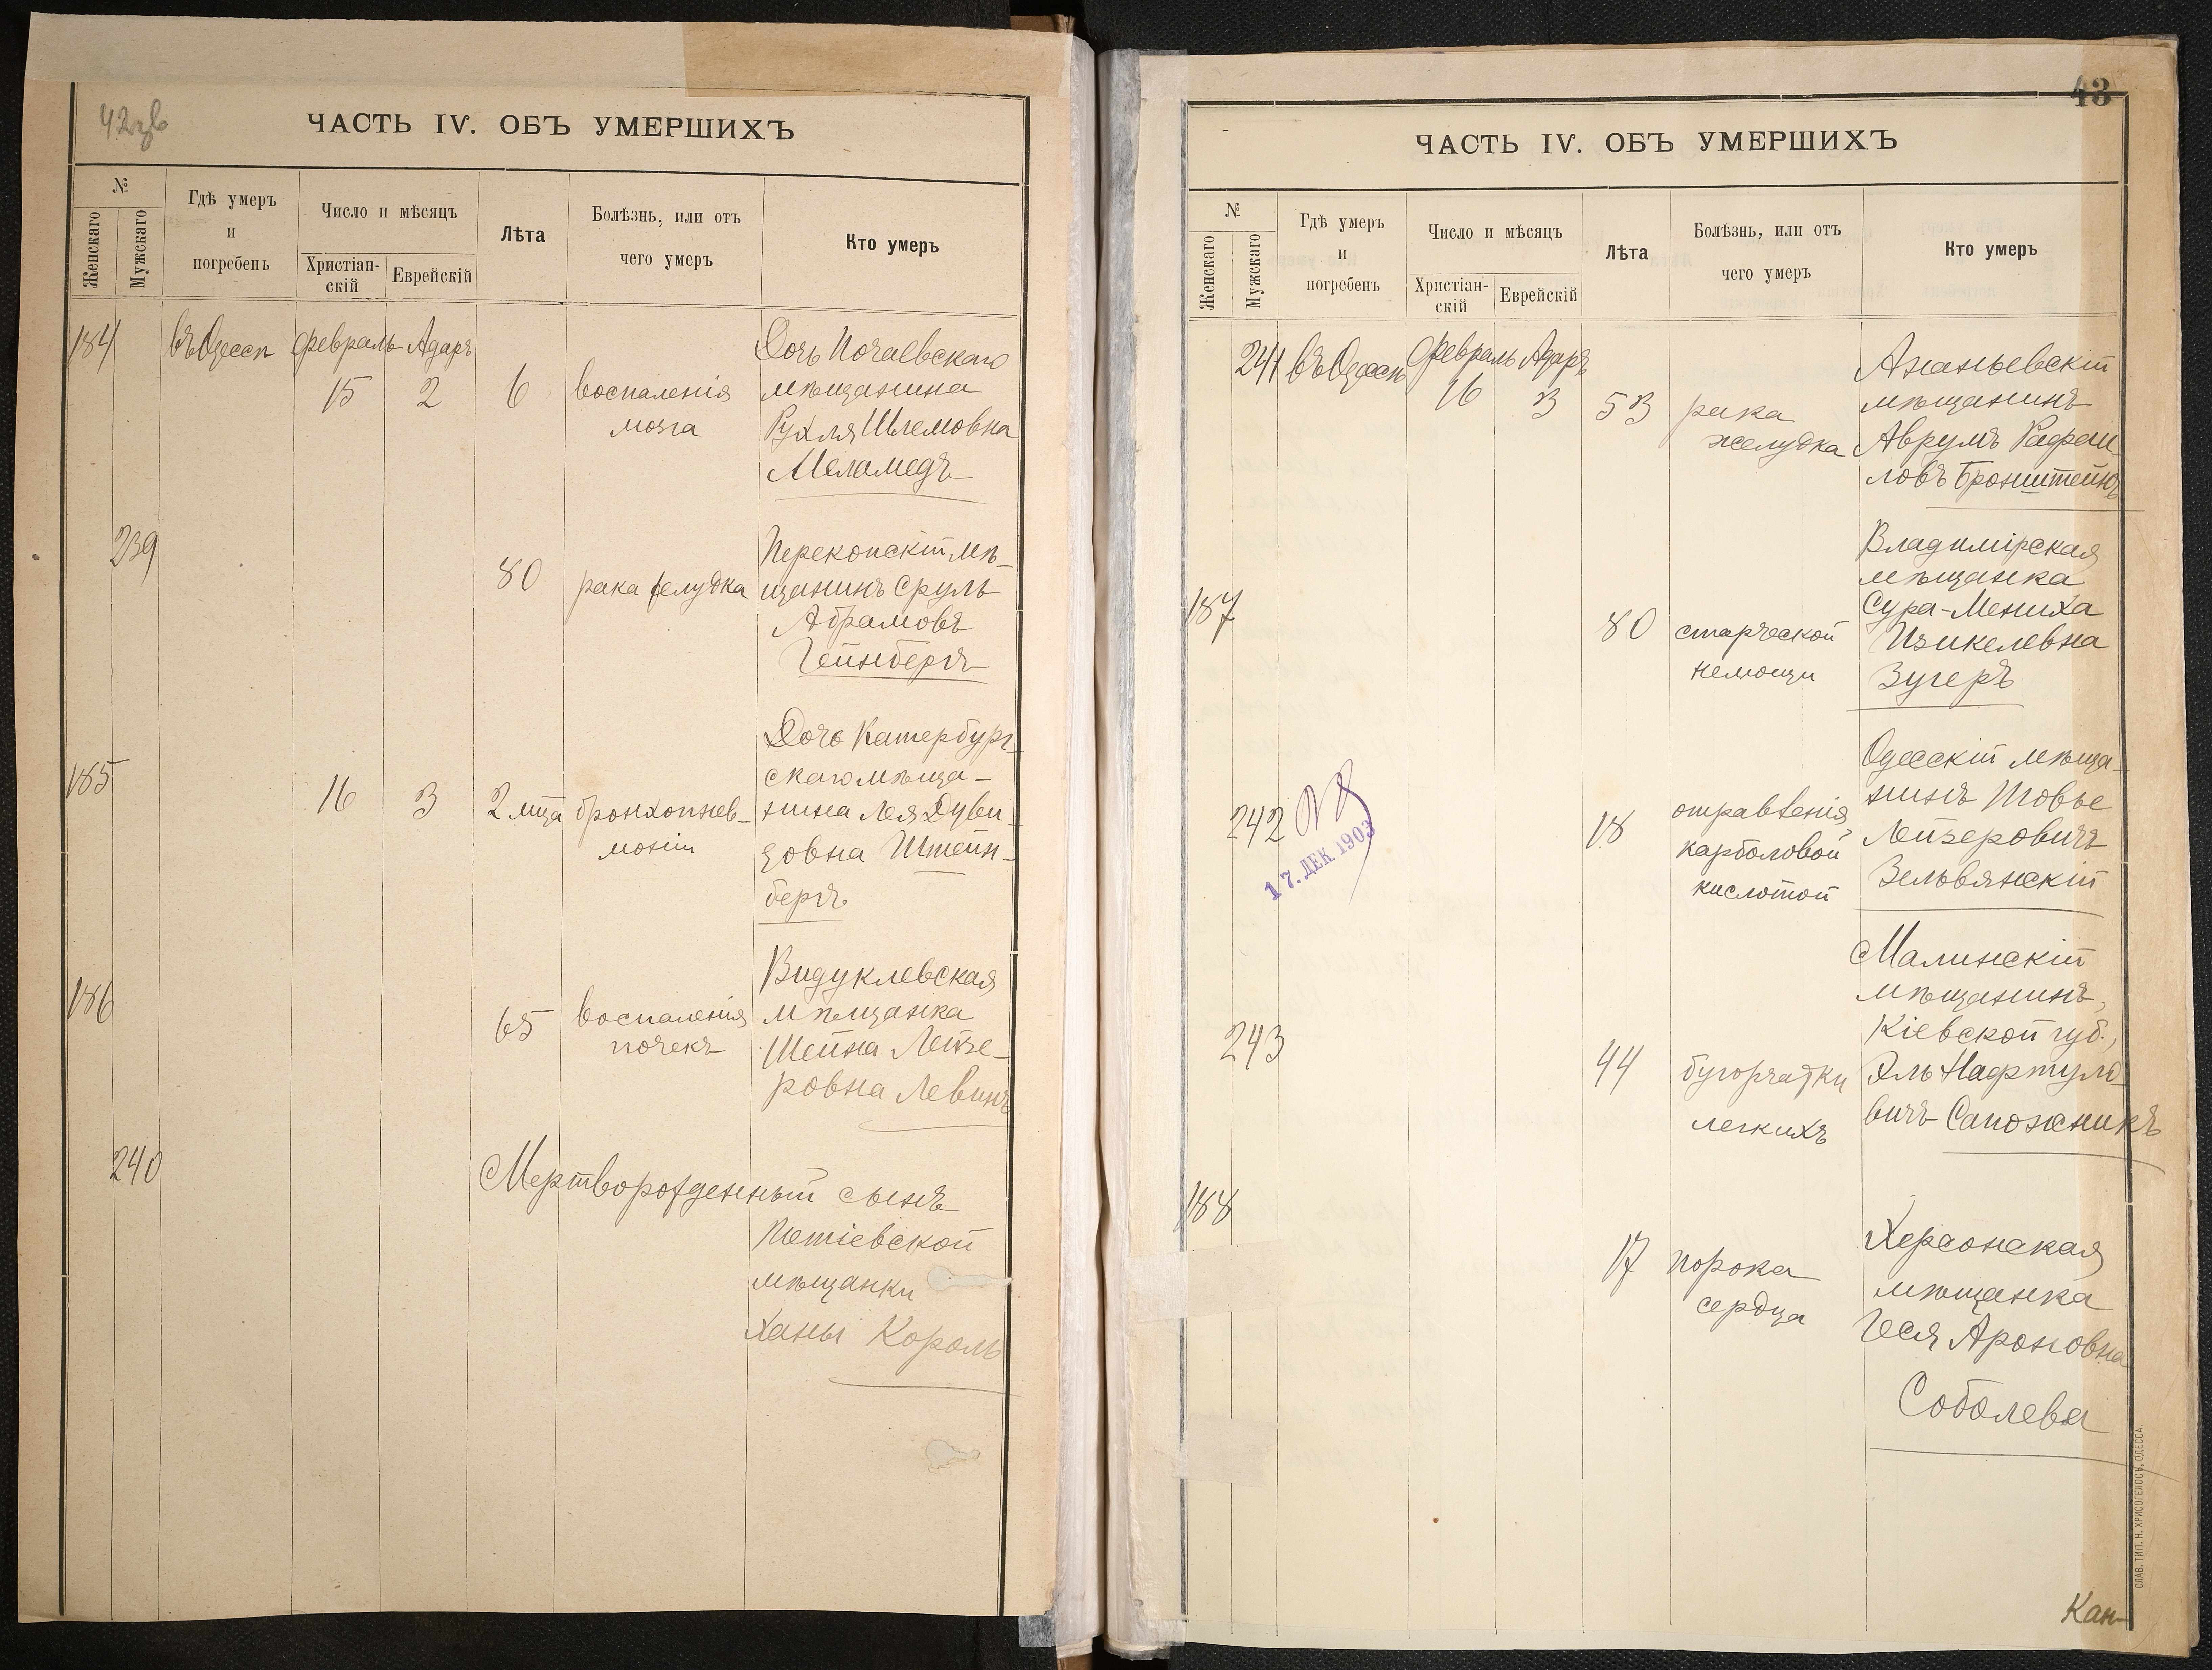 42 зв
ЧАСТЬ IV. ОБЪ УМЕРШИХЪ
№
Женскаго
Мужскаго
Гдѣ умеръ
и
погребенъ
Число и мѣсяцъ
Христіан-
скій
Еврейскій
Лѣта
Болѣзнь, или отъ
чего умеръ
Кто умеръ
184
въ Одессѣ
Февраль
Адаръ
15
2
6
воспаленія
мозга
Дочь Почаевскаго
мѣщанина
Рухля Шлемовна
Меламедъ
239
80
рака желудка
Перекопскій мѣ-
щанинъ Сруль
Абрамовъ
Гейнбергъ
185
16
3
2 мца
бронхопнев-
моніи
Дочь Катербург-
скаго мѣща-
нина Лея Дуви-
довна Штейн-
бергъ
186
65
воспаленія
почекъ
Видуклевская
мѣщанка
Шейна Лейзе-
ровна Левинъ
240
Мертворожденный сынъ
мѣщанки
Ханы Король
43
ЧАСТЬ IV. ОБЪ УМЕРШИХЪ
№
Женскаго
Мужскаго
Гдѣ умеръ
и
погребенъ
Число и мѣсяцъ
Христіан-
скій
Еврейскій
Лѣта
Болѣзнь, или отъ
чего умеръ
Кто умеръ
241
въ Одессѣ
Февраль
Адаръ
16
3
53
рака
желудка
Ананьевскій
мѣщанинъ
Аврумъ Рафаи-
ловъ Бронштейнъ
187
80
старческой
немощи
Владимірская
мѣщанка
Сура-Мениха
Изикелевна
Зугеръ
242
17. ДЕК 1903
18
отравленія
карболовой
кислотой
Одесскій мѣща-
нинъ Товье
Лейзеровичъ
Зельвянскій
243
44
бугорчатки
легкихъ
Малинскій
мѣщанинъ,
Кіевской губ.,
Эль Нафтуло-
вичъ Сапожникъ
188
17
порока
сердца
Херсонская
мѣщанка
Геся Ароновна
Соболева
СЛАВ. ТИП. Н. ХРИСОГЕЛОСЪ, ОДЕССА.
Кан-